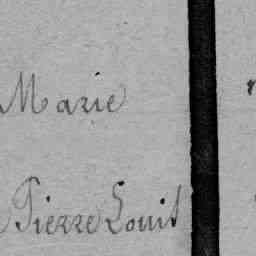 Marie
Pierre Louit